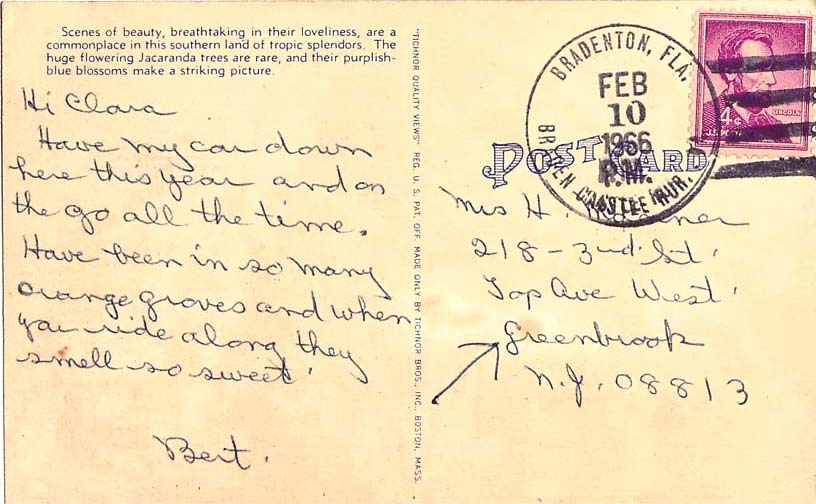 Scenes of beauty, breathtaking in their loveliness, are a
commonplace in this southern land of tropic splendors. The
huge flowering Jacaranda trees are rare, and their purplish-
blue blossoms make a striking picture.
Hi Clara
Have my car down
here this year and on
the go all the time.
Have been in so many
orange groves and when
you ride along they
smell so sweet.
Bert.
"TICHNOR QUALITY VIEWS" REG. U. S. PAT. OFF. MADE ONLY BY TICHNOR BROS., INC., BOSTON, MASS.
BRADENTON, FLA.
FEB
10
1966
P.M.
CASTLE RUR.
4¢
LINCOLN
POST CARD
Mrs H.
218 - 3rd St.
Top Ave West.
Greenbrook
N.J. 08813